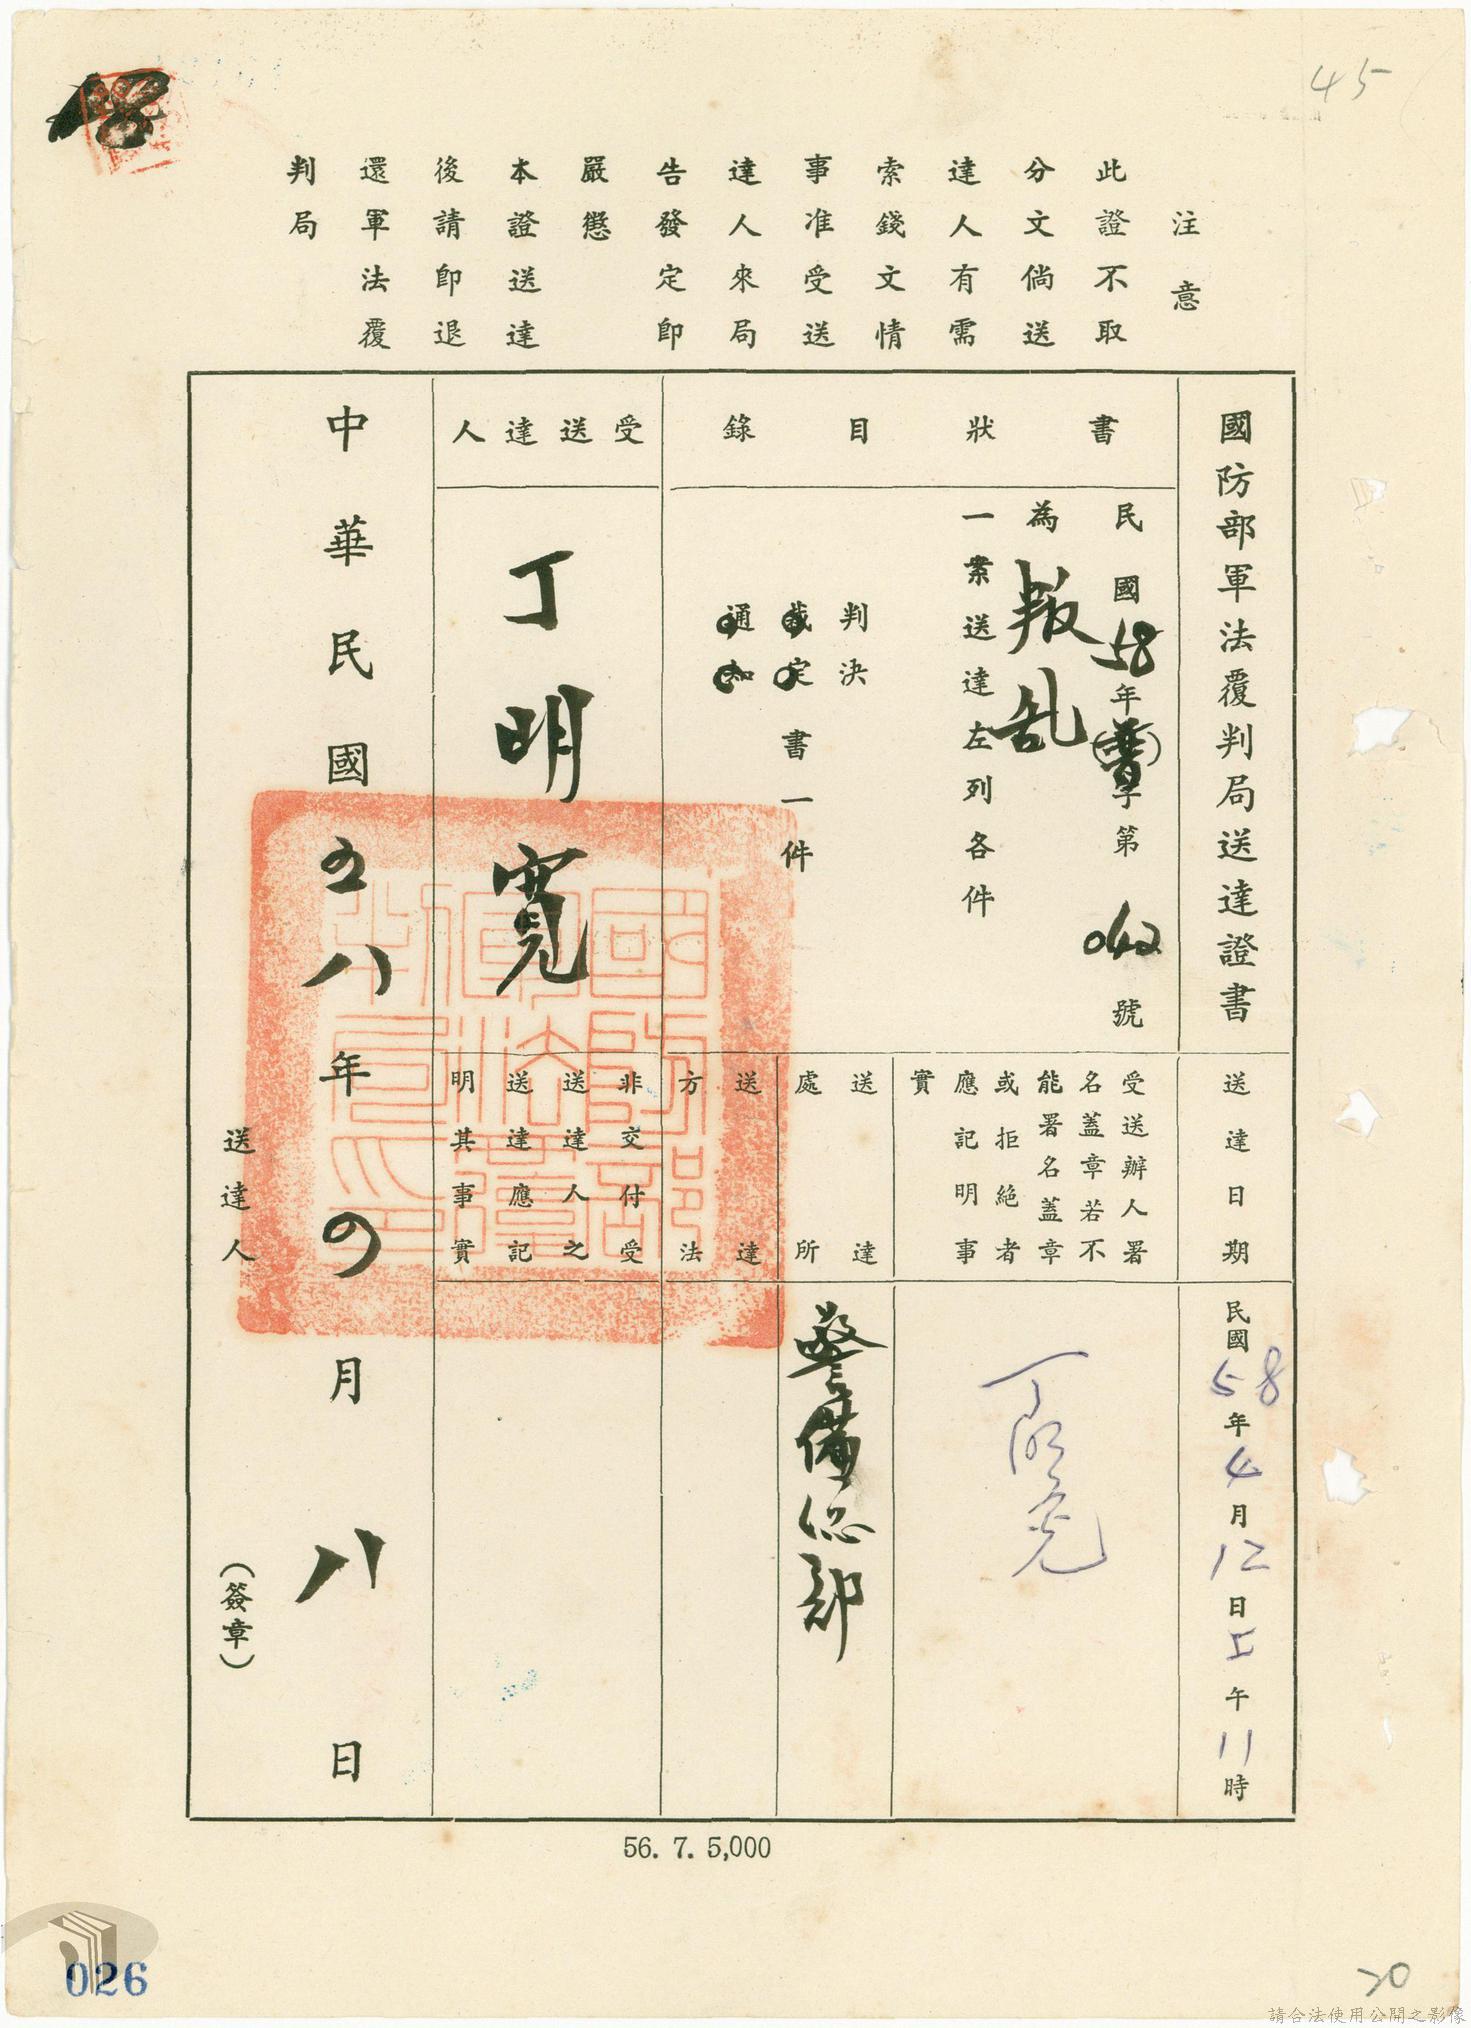 45
注意
此證不取
分文倘送
達人有需
索錢文情
事准受送
達人來局
告發定即
嚴懲
本證送達
後請即退
還軍法覆
判局
國防部軍法覆判局送達證書
書狀目錄
民國58年(普)字第042號
為叛乱
一案送達左列各件
判決
裁定書一件
通知
受送達人
丁明寬
送達日期
民國58年4月12日上午11時
受送辦人署
名蓋章若不
能署名蓋章
或拒絕者
應記明事
實
丁明寬
送達
處所
警備總部
送達
方法
非交付受
送達人之
送達應記
明其事實
中華民國五八年四月八日
送達人
(簽章)
國防部軍法覆判局印
56. 7. 5,000
026
20
請合法使用公開之影像